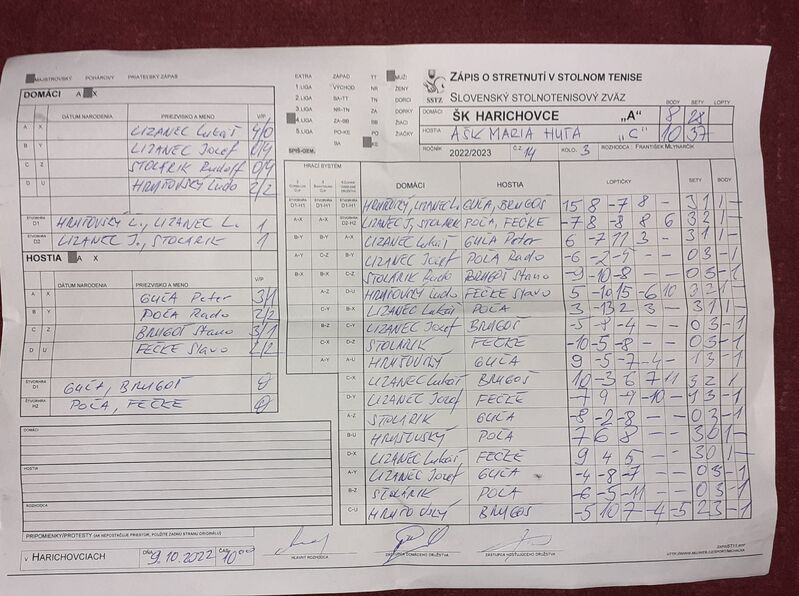 MAJSTROVSKÝ POHÁROVÝ PRIATEĽSKÝ ZÁPAS
DOMÁCI A X
DÁTUM NARODENIA PRIEZVISKO A MENO V/P
A X LIZANEC Lukáš 4/0
B Y LIZANEC Jozef 0/4
C Z STOLÁRIK Rudolf 0/4
D U HRUŠOVSKÝ Ludo 2/2
ŠTVORHRA D1 HRUŠOVSKÝ L., LIZANEC L. 1
ŠTVORHRA D2 LIZANEC J., STOLÁRIK 1
HOSTIA A X
DÁTUM NARODENIA PRIEZVISKO A MENO V/P
A X GUĽA Peter 3/1
B Y POĽA Rado 2/2
C Z BRUGOŠ Stano 3/1
D U FEČKE Slavo 2/2
ŠTVORHRA D1 GUĽA, BRUGOŠ 0
ŠTVORHRA H2 POĽA, FEČKE 0
DOMÁCI
HOSTIA
ROZHODCA
PRIPOMIENKY/PROTESTY (AK NEPOSTAČUJE PRIESTOR, POUŽITE ZADNÚ STRANU ORIGINÁLU)
V HARICHOVCIACH DŇA 9.10.2022 ČAS 10⁰⁰
HLAVNÝ ROZHODCA
ZÁSTUPCA DOMÁCEHO DRUŽSTVA
ZÁSTUPCA HOSŤUJÚCEHO DRUŽSTVA
EXTRA ZÁPAD TT MUŽI
1.LIGA VÝCHOD NR ŽENY
2.LIGA BA-TT TN DORCI
3.LIGA NR-TN ZA DORKY
4.LIGA ZA-BB BB ŽIACI
5.LIGA PO-KE PO
BA KE
SPIŠ-GEM.
SSTZ
ZÁPIS O STRETNUTÍ V STOLNOM TENISE
SLOVENSKÝ STOLNOTENISOVÝ ZVÄZ
BODY SETY LOPTY
DOMÁCI ŠK HARICHOVCE „A" 8 28
HOSTIA AŠK MARIA HUTA „C" 10 37
ROČNÍK 2022/2023 Č.Z. 14 KOLO. 3 ROZHODCA FRANTIŠEK MLYNARČIK
HRACÍ SYSTÉM DOMÁCI HOSTIA LOPTIČKY SETY BODY
HRUŠOVSKÝ, LIZANEC L. GUĽA, BRUGOŠ 15 8 -7 8 - 3 1 1 -
LIZANEC J, STOLÁRIK POĽA, FEČKE -7 8 -8 8 6 3 2 1 -
LIZANEC Lukáš GUĽA Peter 6 -7 11 3 - 3 1 1 -
LIZANEC Jozef POĽA Rado
STOLÁRIK Rudo BRUGOŠ Stano -9 -10 -8 - - 0 3 - 1
HRUŠOVSKÝ Ludo FEČKE Slavo 5 -10 15 -6 10 3 2 1 -
LIZANEC Lukáš POĽA 3 -13 2 3 - 3 1 1 -
LIZANEC Jozef BRUGOŠ
STOLÁRIK FEČKE -10 -5 -8 - - 0 3 - 1
HRUŠOVSKÝ GUĽA 9 -5 -7 -4 - 1 3 - 1
C-X LIZANEC Lukáš BRUGOŠ 10 -3 6 -7 11 3 2 1
D-Y LIZANEC Jozef FEČKE -7 9 -9 -10 - 1 3 - 1
A-Z STOLÁRIK GUĽA -8 -2 -8 - - 0 3 - 1
B-U HRUŠOVSKÝ POĽA 7 6 8 - - 3 0 1 -
D-X LIZANEC Lukáš FEČKE 9 4 5 - - 3 0 1 -
A-Y LIZANEC Jozef GUĽA -4 -8 -7 - - 0 3 - 1
B-Z STOLÁRIK POĽA -6 -5 -11 - - 0 3 - 1
C-U HRUŠOVSKÝ BRUGOŠ -5 10 7 -4 -5 2 3 - 1